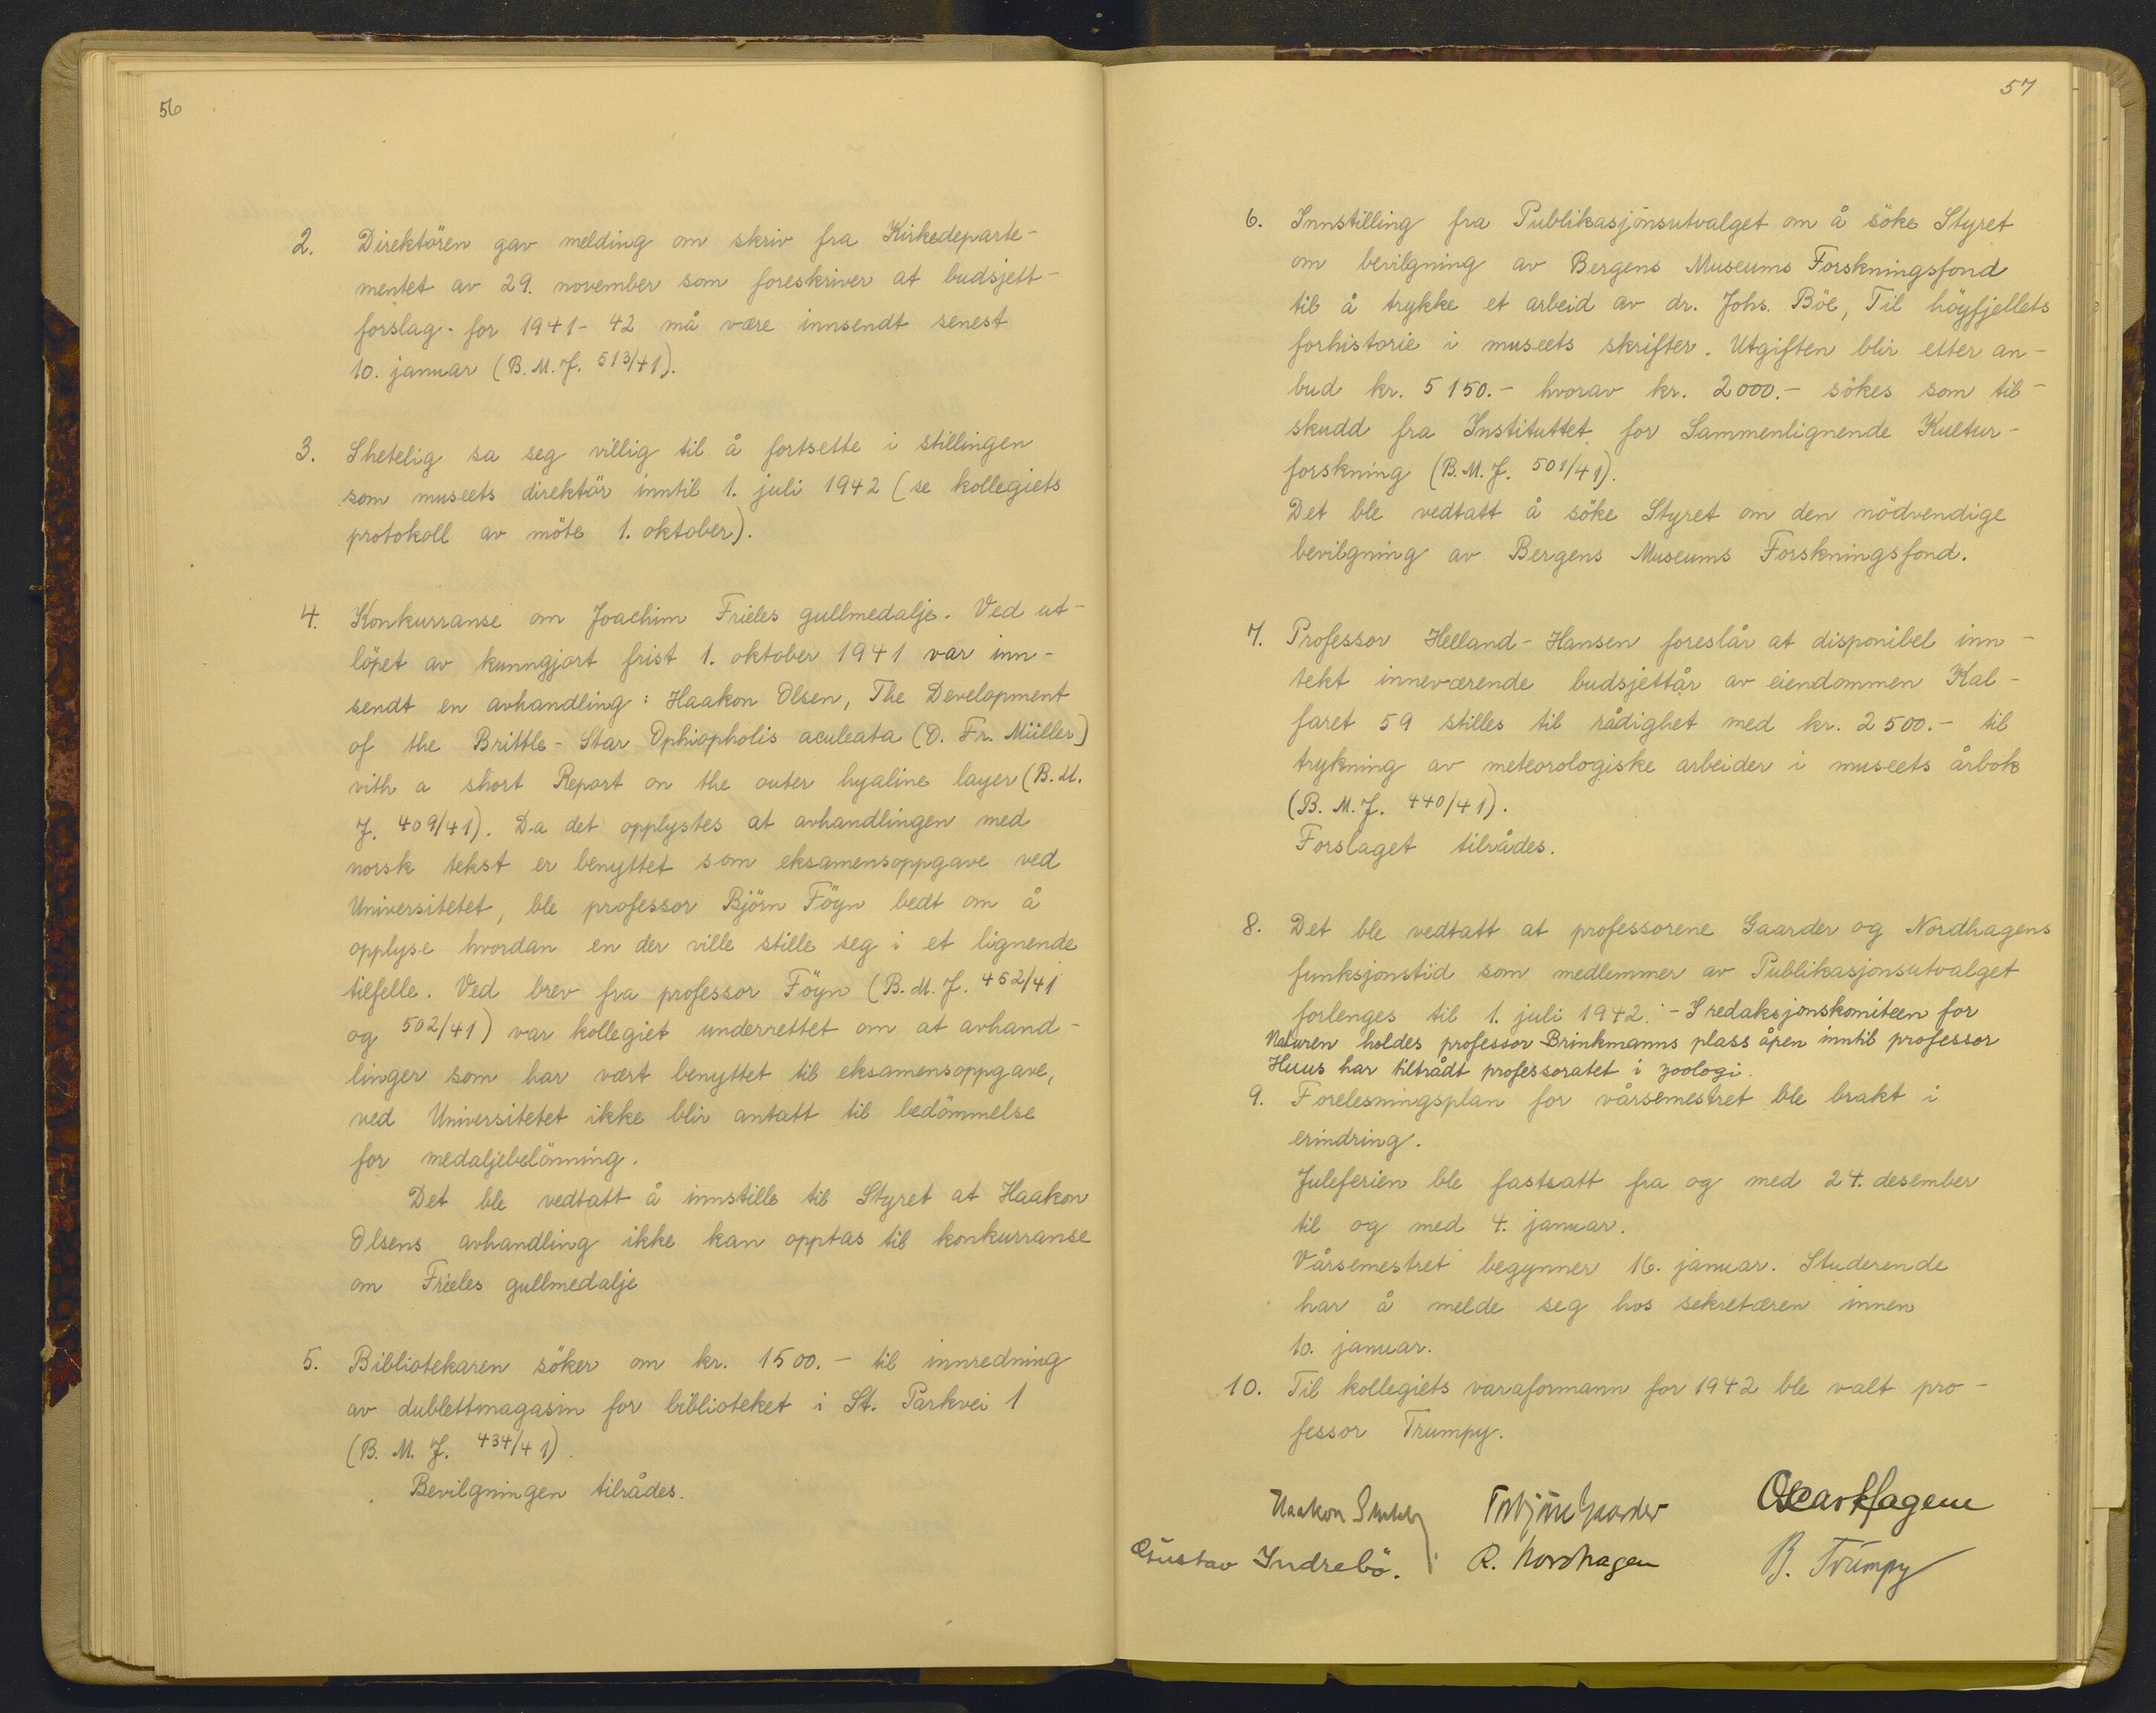 56
2. Direktören gav melding om skriv fra Kirkedeparte-
mentet av 29. november som foreskriver at budsjett-
forslag for 1941-42 må være innsendt senest
10. januar (B. M. J. 513/41).
3. Shetelig sa seg villig til å fortsette i stillingen
som museets direktör inntil 1. juli 1942 (se kollegiets
protokoll av möte 1. oktober).
4. Konkurranse om Joachim Frieles gullmedalje. Ved ut-
löpet av kunngjort frist 1. oktober 1941 var inn-
sendt en avhandling: Haakon Olsen, The Development
of the Brittle-Star Ophiopholis aculeata (O. Fr. Müller)
vith a short Report on the outer hyaline layer (B. M.
J. 409/41). Da det opplystes at avhandlingen med
norsk tekst er benyttet som eksamensoppgave ved
Universitetet, ble professor Björn Föyn bedt om å
opplyse hvordan en der ville stille seg i et lignende
tilfelle. Ved brev fra professor Föyn (B. M. J. 452/41
og 502/41) var kollegiet underrettet om at avhand-
linger som har vært benyttet til eksamensoppgave,
ved Universitetet ikke blir antatt til bedömmelse
for medaljebelönning.
Det ble vedtatt å innstille til Styret at Haakon
Olsens avhandling ikke kan opptas til konkurranse
om Frieles gullmedalje
5. Bibliotekaren söker om kr. 1500.- til innredning
av dublettmagasin for biblioteket i St. Parkvei 1
(B. M. J. 434/41).
Bevilgningen tilrådes.
57
6. Innstilling fra Publikasjonsutvalget om å söke Styret
om bevilgning av Bergens Museums Forskningsfond
til å trykke et arbeid av dr. Johs. Böe, Til höyfjellets
forhistorie i museets skrifter. Utgiften blir etter an-
bud kr. 5150.- hvorav kr. 2000.- sökes som til-
skudd fra Instituttet for Sammenlignende Kultur-
forskning (B. M. J. 501/41).
Det ble vedtatt å söke Styret om den nödvendige
bevilgning av Bergens Museums Forskningsfond.
7. Professor Helland-Hansen foreslår at disponibel inn-
tekt inneværende budsjettår av eiendommen Kal-
faret 59 stilles til rådighet med kr. 2500.- til
trykning av meteorologiske arbeider i museets årbok
(B. M. J. 440/41).
Forslaget tilrådes.
8. Det ble vedtatt at professorene Gaarder og Nordhagens
funksjonstid som medlemmer av Publikasjonsutvalget
forlenges til 1. juli 1942. - I redaksjonskomiteen for
Naturen holdes professor Brinkmanns plass åpen inntil professor
Huus har tiltrådt professoratet i zoologi.
9. Forelesningsplan for vårsemestret ble brakt i
erindring.
Juleferien ble fastsatt fra og med 24. desember
til og med 4. januar.
Vårsemestret begynner 16. januar. Studerende
har å melde seg hos sekretæren innen
10. januar.
10. Til kollegiets varaformann for 1942 ble valt pro-
fessor Trumpy.
Haakon Shetelig Torbjörn Gaarder Oscar Hagem
Gustav Indrebö. R. Nordhagen B. Trumpy